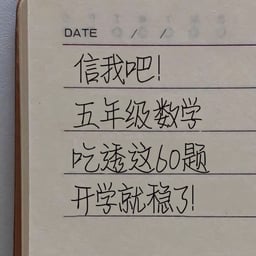 DATE / /
信我吧!
五年级数学
吃透这60题
开学就稳了!